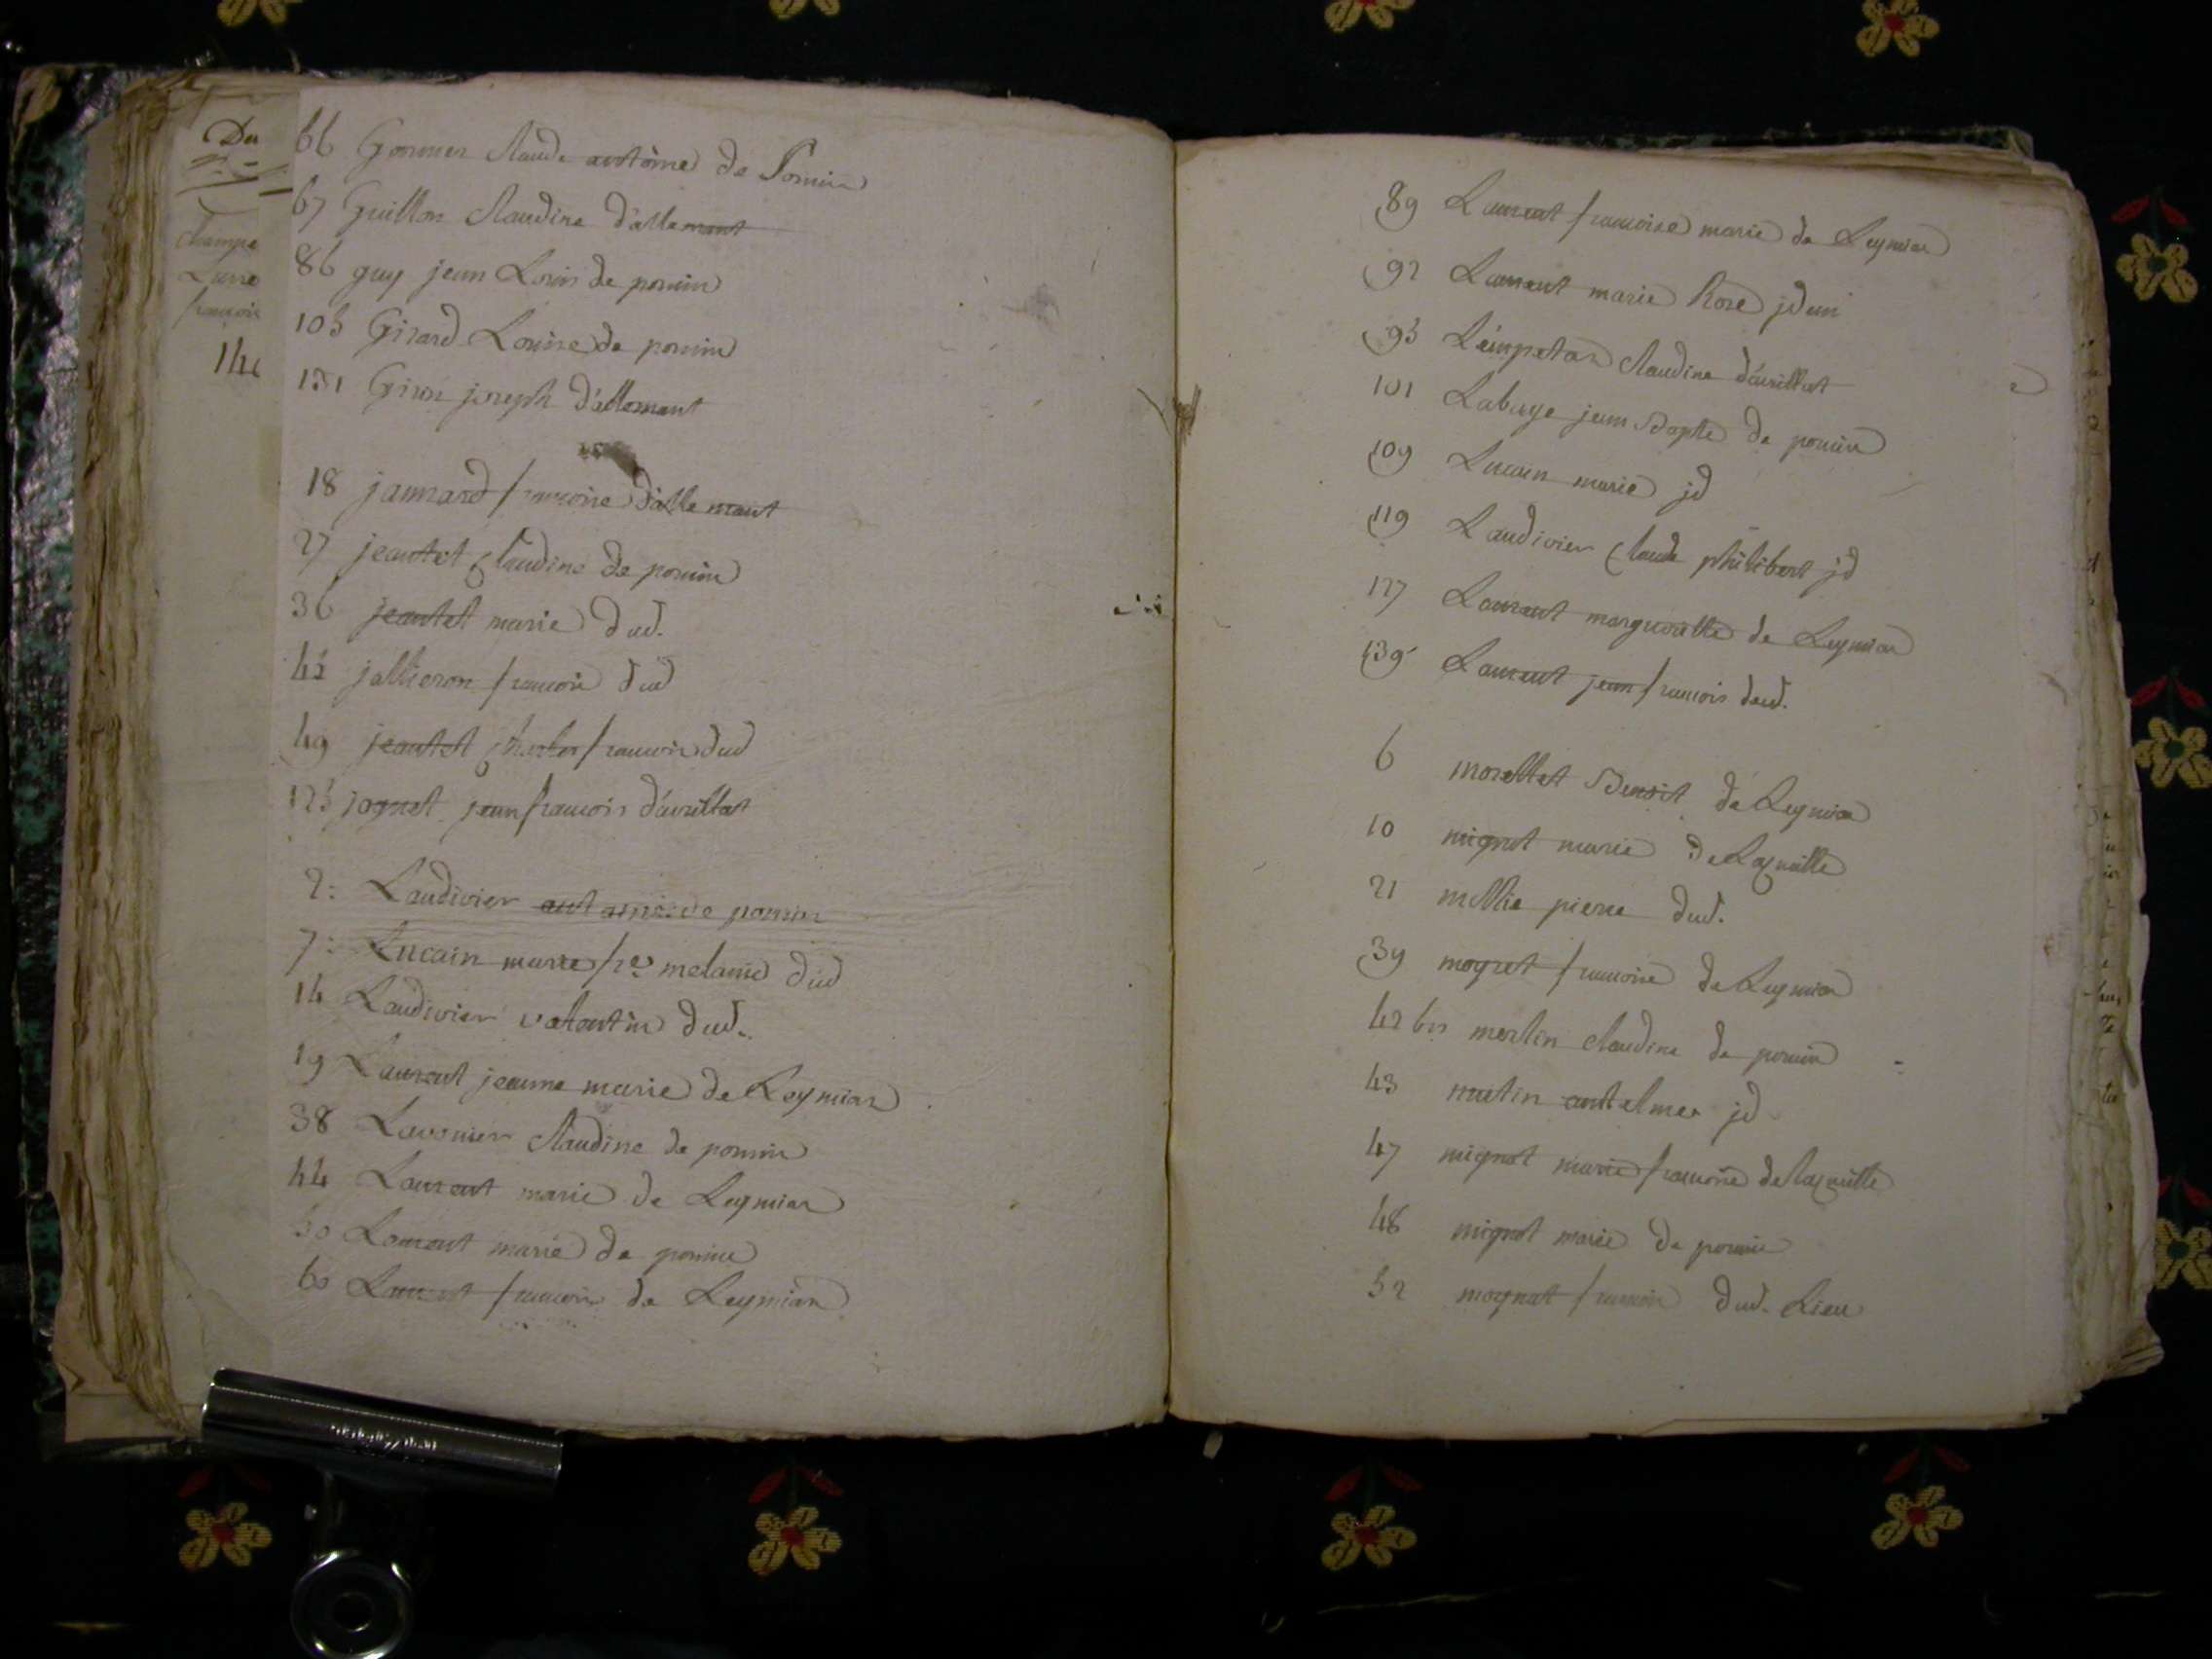 Du
champe
Lurre
francois
144
66 Gonnier Claude antoine de Poncin
67 Guillon Claudine d'allemant
86 guy jean Louis de poncin
105 Girard Louise de poncin
131 Giron joseph d'allemant
18 jannard francoise d'allemant
27 jeantet Claudine de poncin
36 jeantet marie dud.
45 jallieron francois dud
49 jeantet Charles francois dud
125 jagnet jean francois d'avrillat
2: Laudivier antoine de poncin
7: Lucain marie fr.se melanie dud
14 Laudivier valentin dud.
19 Laurent jeanne marie de Leymiar
38 Lavenier Claudine de poncin
44 Laurent marie de Leymiar
50 Laurent marie de poncin
60 Laurent francois de Leymiar
89 Laurent francoise marie de Leymiar
92 Laurent marie Rose jdem
95 Claudine d'avrillat
101 Labaye jean Bapte de poncin
109 Lucain marie jd
119 Laudivier Claude philibert jd
127 Laurent marguerite de Leymiar
139 Laurent jean francois dud.
6 morellet Benoit de Leymiar
10 mignot marie de
21 millia pierre dud.
39 moyret francoise de Leymiar
42 bis merlin claudine de poncin
43 mutin antelmea jd
47 mignot marie francoise de
48 mignot marie de poncin
52 moynat francois dud. Lieu